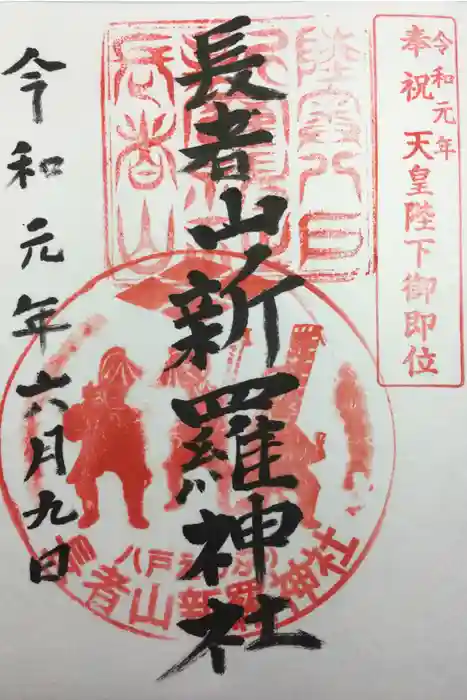 令和元年
奉祝 天皇陛下御即位
長者山新羅神社
令和元年六月九日
八戸
長者山新羅神社